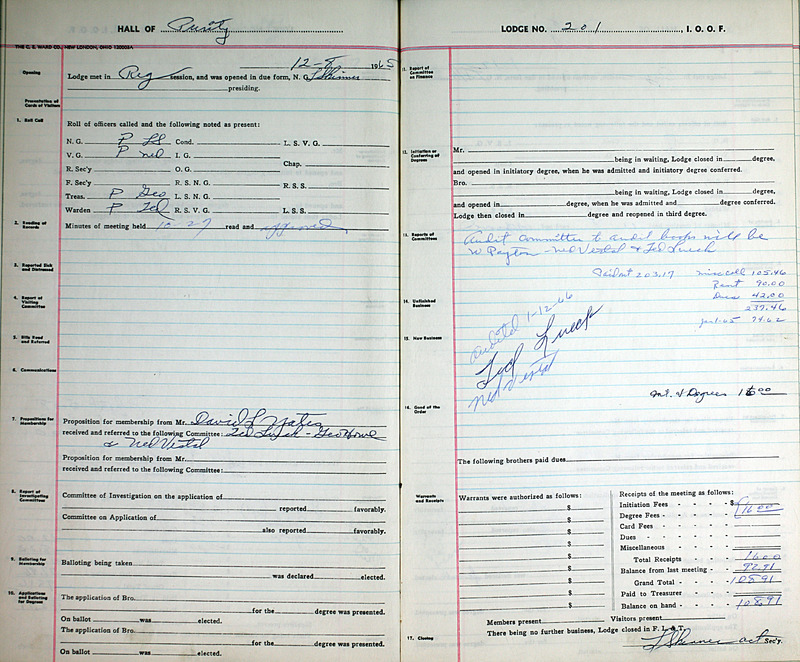 HALL OF Purity
THE C. E. WARD CO., NEW LONDON, OHIO
12-8 1965
Opening
Lodge met in Reg session, and was opened in due form, N. G.
presiding.
Presentation of Cards of Visitors
1. Roll Call
Roll of officers called and the following noted as present:
N. G. P LS Cond. L. S. V. G.
V. G. P Ned I. G. Chap.
R. Sec'y O. G.
F. Sec'y R. S. N. G. R. S. S.
Treas. P Geo L. S. N. G.
Warden P Ted R. S. V. G. L. S. S.
2. Reading of Records
Minutes of meeting held 10-27 read and approved
3. Reported Sick and Distressed
4. Report of Visiting Committee
5. Bills Read and Referred
6. Communications
7. Propositions for Membership
Proposition for membership from Mr. David L Yates
received and referred to the following Committee: Ted Lueck - Geo Howe
& Ned Vestal
Proposition for membership from Mr.
received and referred to the following Committee:
8. Report of Investigating Committees
Committee of Investigation on the application of
reported favorably.
Committee on Application of
also reported favorably.
9. Balloting for Membership
Balloting being taken
was declared elected.
10. Applications and Balloting for Degrees
The application of Bro.
for the degree was presented.
On ballot was elected.
The application of Bro.
for the degree was presented.
On ballot was elected.
LODGE NO. 201, I. O. O. F.
11. Report of Committee on Finance
12. Initiation or Conferring of Degrees
Mr.
being in waiting, Lodge closed in degree,
and opened in initiatory degree, when he was admitted and initiatory degree conferred.
Bro.
being in waiting, Lodge closed in degree,
and opened in degree, when he was admitted and degree conferred.
Lodge then closed in degree and reopened in third degree.
13. Reports of Committees
Audit Committee to audit books will be
W Peyton - Ned Vestal & Ted Lueck
Paid out 203.17 miscell 105.46
Rent 90.00
Dues 42.00
237.46
74.62
14. Unfinished Business
audited 1-12-66
15. New Business
Ted Lueck
Ned Vestal
Int. & Degrees 16 00
16. Good of the Order
The following brothers paid dues
Warrants and Receipts
Warrants were authorized as follows:
$
$
$
$
$
$
$
$
$
Receipts of the meeting as follows:
Initiation Fees - - - $
Degree Fees - - - 16 00
Card Fees - - -
Dues - - -
Miscellaneous - - -
Total Receipts - - 16 00
Balance from last meeting - 92.91
Grand Total - - 108.91
Paid to Treasurer - -
Balance on hand - - 108.91
Members present Visitors present
17. Closing
There being no further business, Lodge closed in F. L. & T.
act Sec'y.